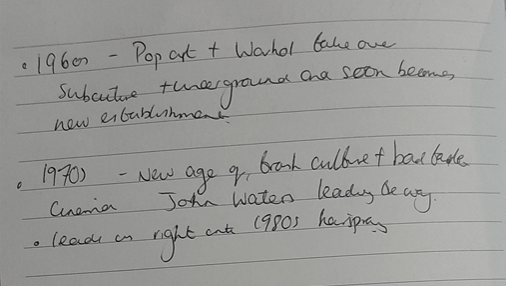 • 1960s - Pop art + Warhol take over
Subculture + underground and soon becomes
new establishment
• 1970s - New age of trash culture + bad taste
Cinema John Waters leading the way.
• leads on right into 1980s hairspray